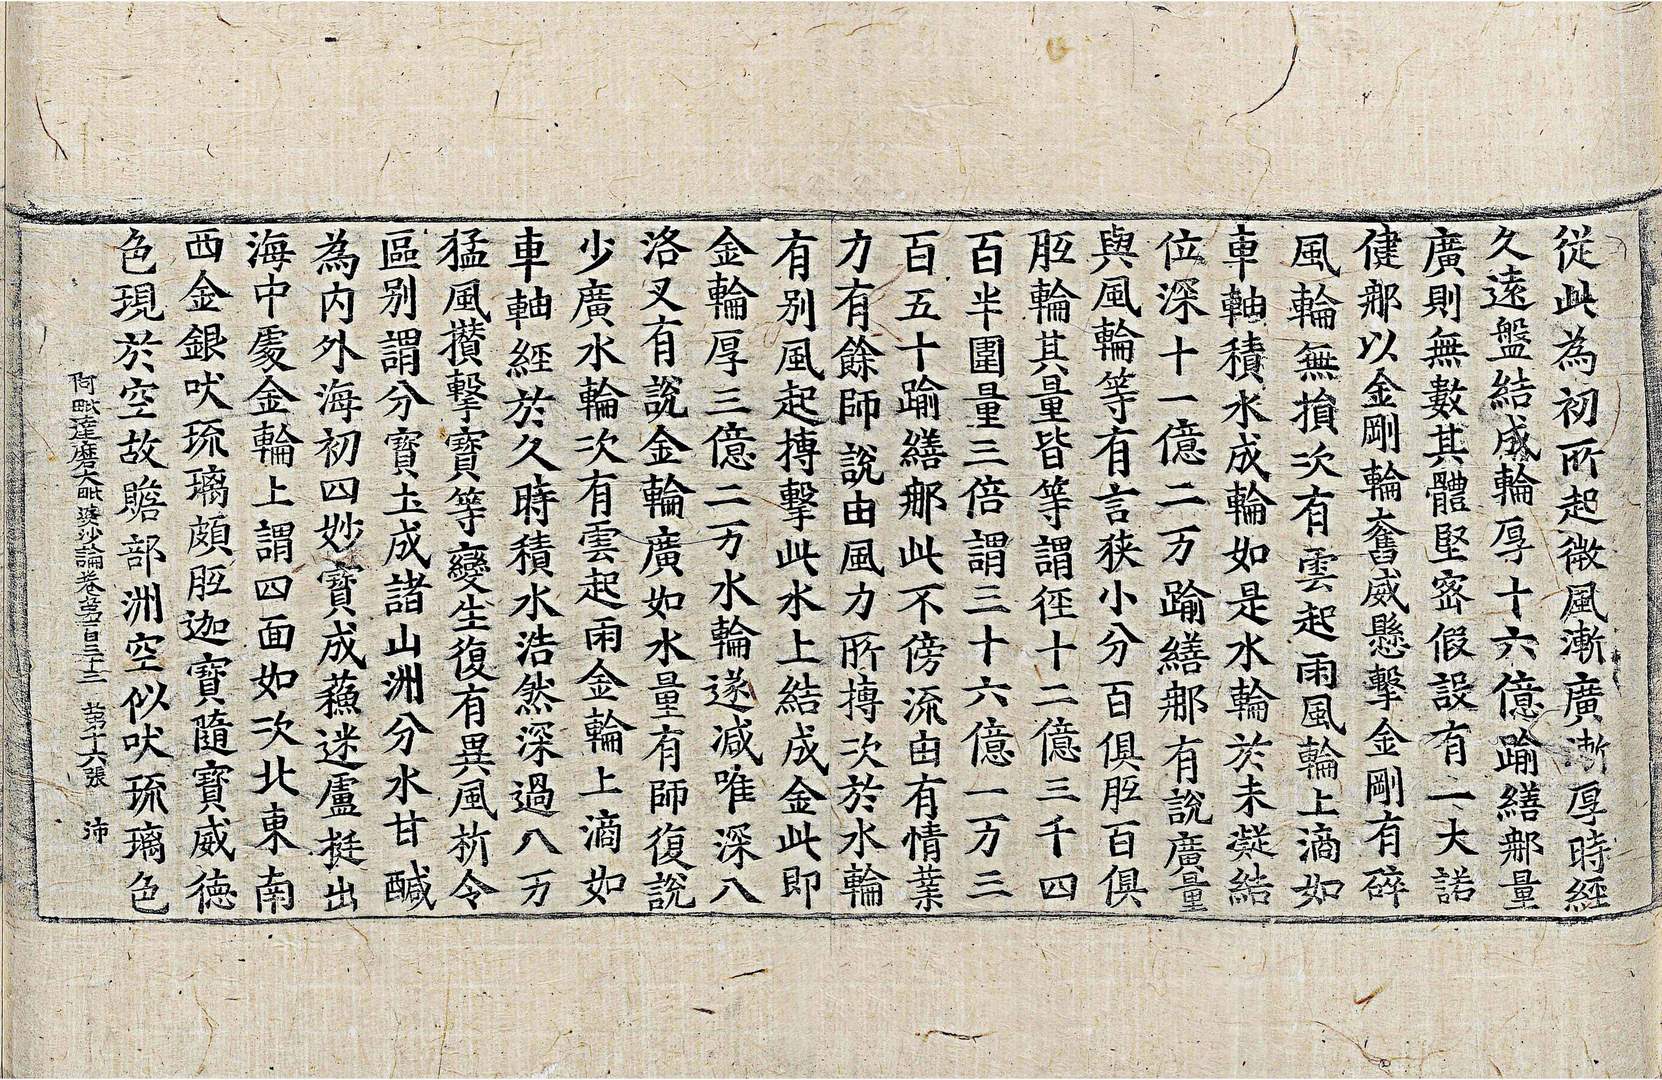 從此為初所起微風漸廣漸厚時經
久遠盤結成輪厚十六億踰繕那量
廣則無數其體堅密假設有一大諾
健那以金剛輪奮威懸擊金剛有碎
風輪無損次有雲起雨風輪上滴如
車軸積水成輪如是水輪於未凝結
位深十一億二万踰繕那有說廣量
與風輪等有言狹小分百俱胝百俱
胝輪其量皆等謂徑十二億三千四
百半圍量三倍謂三十六億一万三
百五十踰繕那此不傍流由有情業
力有餘師說由風力所摶次於水輪
有別風起摶擊此水上結成金此即
金輪厚三億二万水輪遂減唯深八
洛叉有說金輪廣如水量有師復說
少廣水輪次有雲起雨金輪上滴如
車軸經於久時積水浩然深過八万
猛風攢擊寶等變生復有異風析令
區別謂分寶土成諸山洲分水甘鹹
為內外海初四妙寶成蘇迷盧挺出
海中處金輪上謂四面如次北東南
西金銀吠琉璃頗胝迦寶隨寶威德
色現於空故贍部洲空似吠琉璃色
阿毗達磨大毗婆沙論卷第一百三十三 第十六張 沛